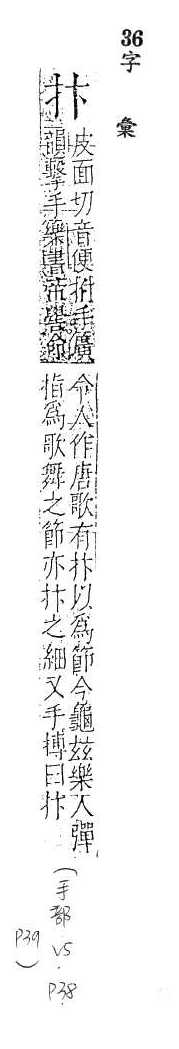 36字彙
抃
皮面切音便拊手廣
韻擊手樂書帝嚳
令人作唐歌有抃以為節今龜茲樂人彈
指為歌舞之節亦抃之細又手搏曰抃
(手部 vs. p38.
p39)